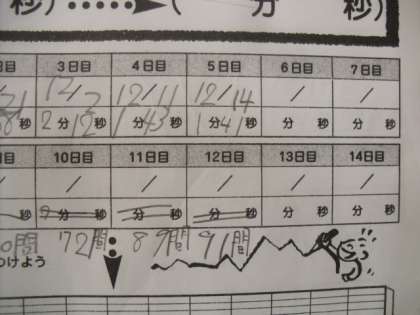 秒)•••••( 分 秒)
日目 3日目 4日目 5日目 6日目 7日目
12/2 12/11 12/14 / /
秒 2分12秒 1分43秒 1分41秒 分 秒 分 秒
日目 10日目 11日目 12日目 13日目 14日目
/ / / / /
秒 分 秒 分 秒 分 秒 分 秒 分 秒
0問 72問 89問 91問
つけよう